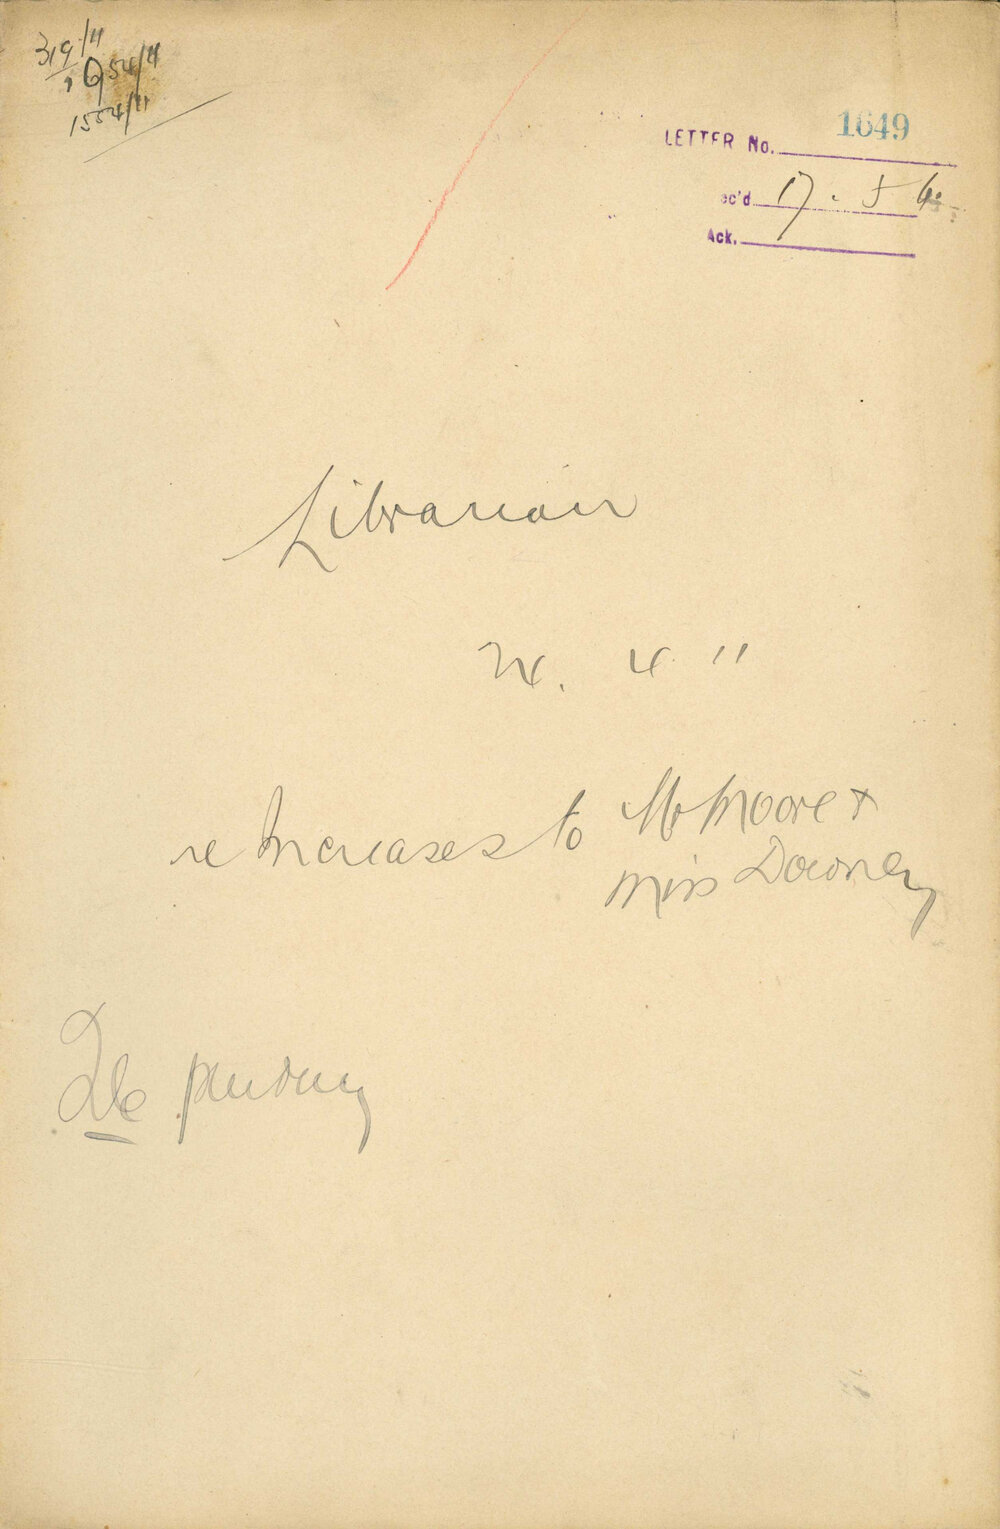 319/11
1554/11
LETTER No. 1649
ec'd 17. 5
Ack.
Librarian
4 11
re Increases to Mr Moore &
Miss Downey
pending